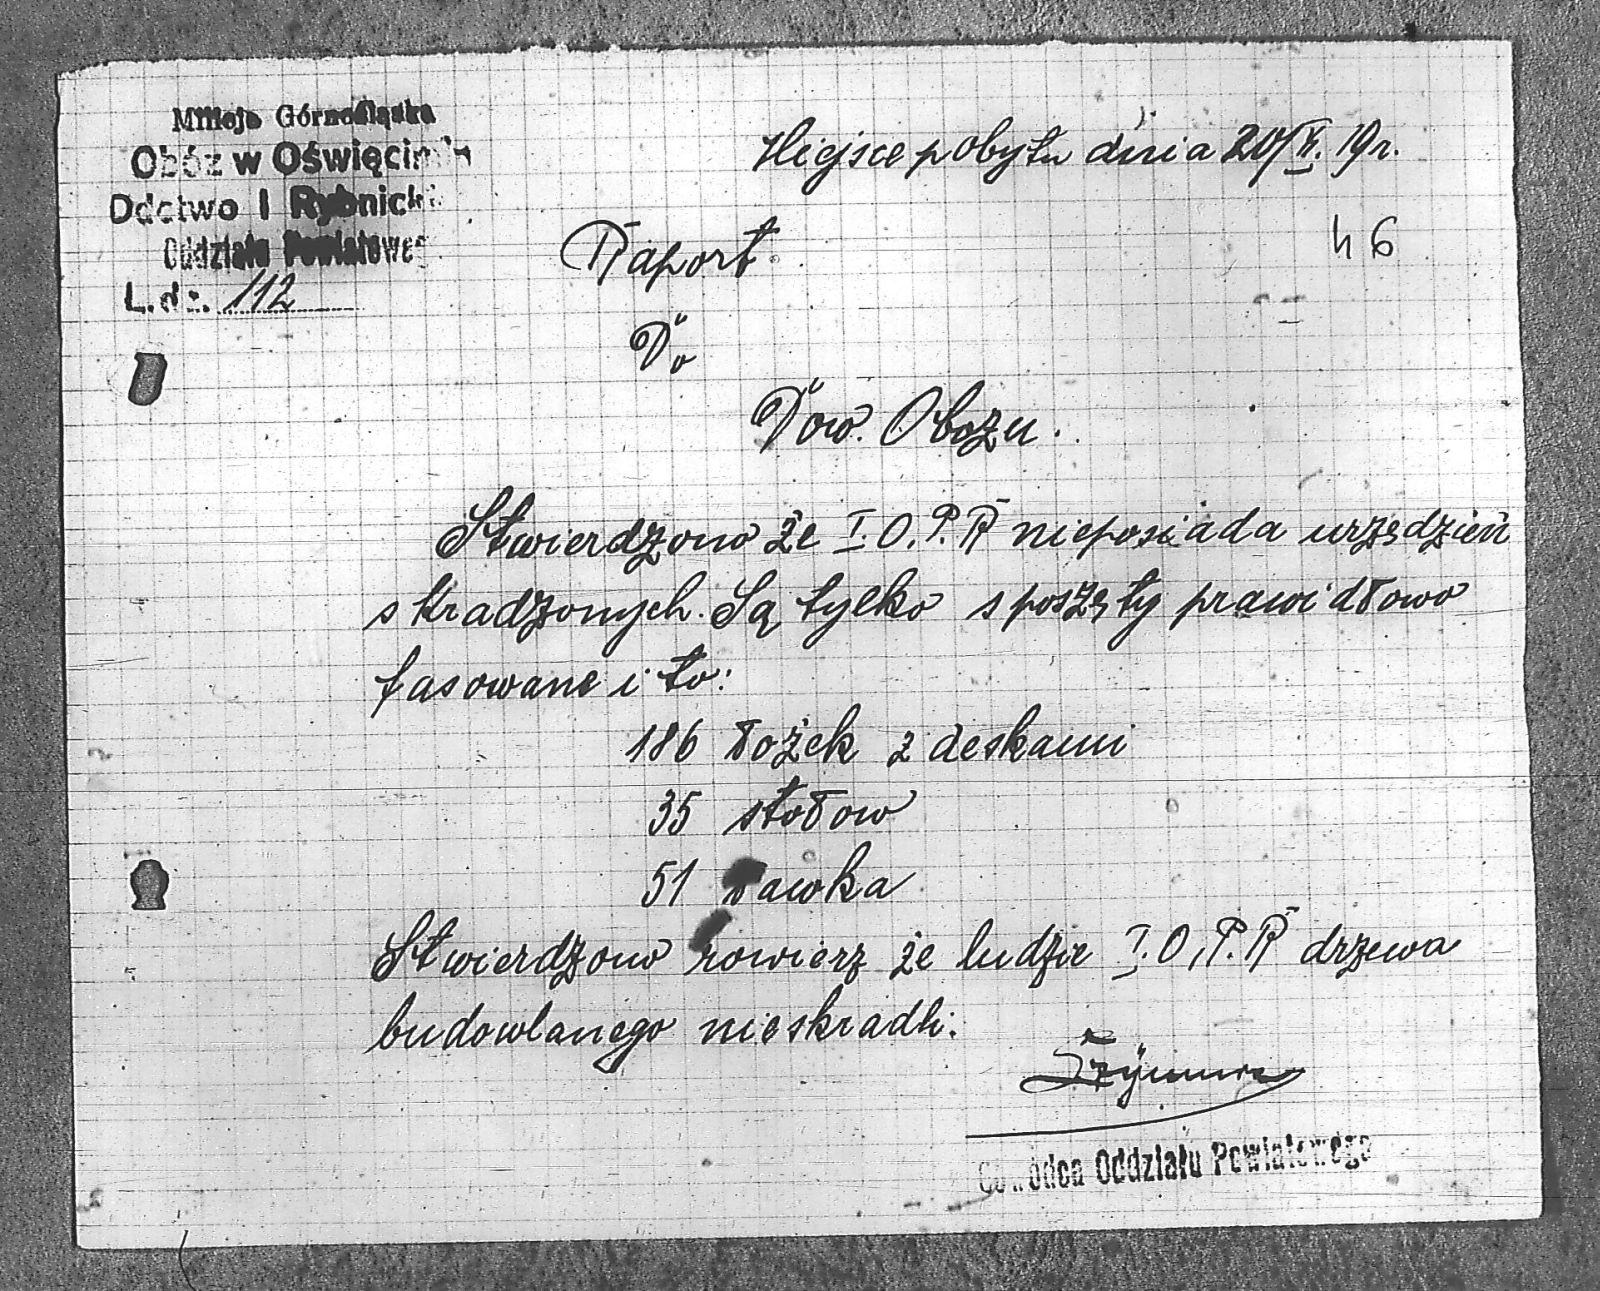 Milicja Górnośląska
Obóz w Oświęcimiu
Ddctwo I Rybnick
Oddziału Powiatoweg
L. dz. 112
Miejsce pobytu dnia 20/X. 19 r.
46
Raport
Do
Dow. Obozu.
Stwierdzono że I. O. P. R nieposiada urządzień
skradzonych. Są tylko sposzęty prawidłowo
fasowane i to:
186 łożek z deskami
35 stołow
51 ławka
Stwierdzono rowierz że ludzie I. O. P. R drzewa
budowlanego nieskradli.
Dowódca Oddziału Powiatowego